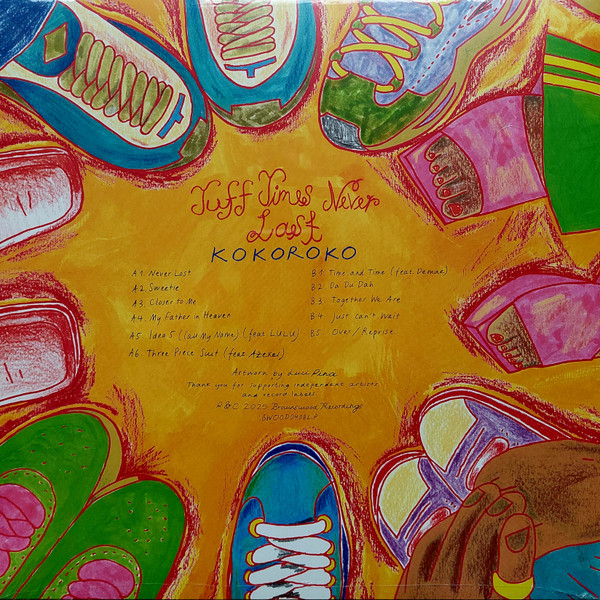 Tuff Times Never
Last
KOKOROKO
A1. Never Lost
A2. Sweetie
A3. Closer to Me
A4. My Father in Heaven
A5. Idea 5 (Call My Name) (feat. LULU)
A6. Three Piece Suit (feat. Azekel)
B.1 Time and Time (feat. Demae)
B.2 Da Du Dah
B.3 Together We Are
B.4 Just Can't Wait
B5. Over / Reprise
Artwork by Luci Pina
Thank you for supporting independent artists
and record labels.
P & C 2025 Brownswood Recordings